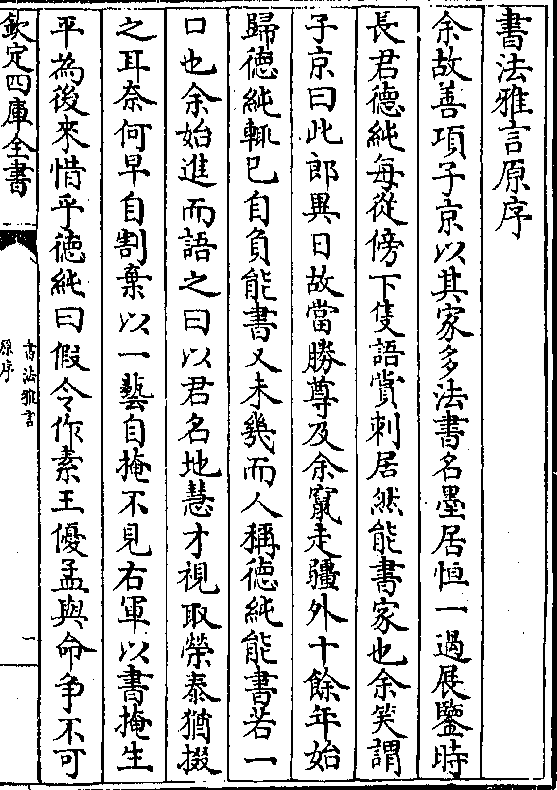 書法雅言原序
余故善項子京以其家多法書名墨居恒一過展鑒時
長君德純每從傍下隻語賞刺居然能書家也余笑謂
子京曰此郎異日故當勝尊及余竄走疆外十餘年始
歸德純輒已自負能書又未幾而人稱德純能書若一
口也余始進而語之曰以君名地慧才視取榮泰猶掇
之耳奈何早自割棄以一藝自掩不見右軍以書掩生
平為後來惜乎德純曰假令作素王優孟與命争不可
欽定四庫全書
書法雅言
原序
一